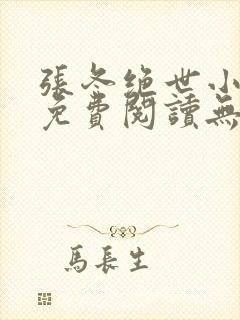 張冬绝世小
免費閱讀無
馬長生